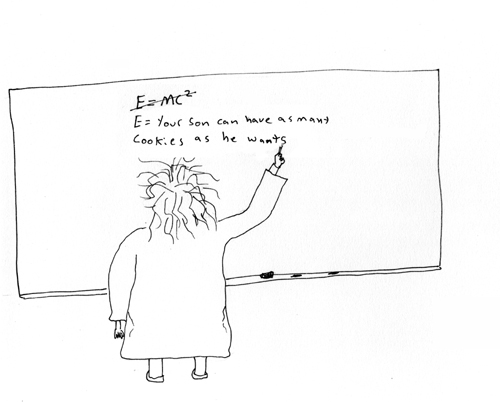 E=MC²
E= Your son can have as many
cookies as he wants